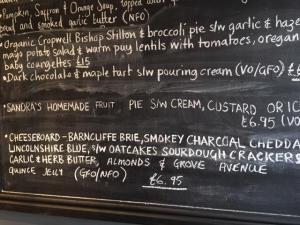 Pumpkin, Saffron & Orange Soup, topped
bread and smoked garlic butter (NFO)
• Organic Cropwell Bishop Stilton & broccoli pie s/w garlic & haze
mayo potato salad & warm puy lentils with tomatoes, oregan
baby courgettes £15
• Dark chocolate & maple tart s/w pouring cream (VO/GFO) £6
SANDRA'S HOMEMADE FRUIT PIE S/W CREAM, CUSTARD OR IC
£6.95 (VO
• CHEESEBOARD - BARNCLIFFE BRIE, SMOKEY CHARCOAL CHEDDA
LINCOLNSHIRE BLUE, S/W OATCAKES SOURDOUGH CRACKERS
GARLIC & HERB BUTTER, ALMONDS & GROVE AVENUE
QUINCE JELLY (GFO/NFO)
£6.95